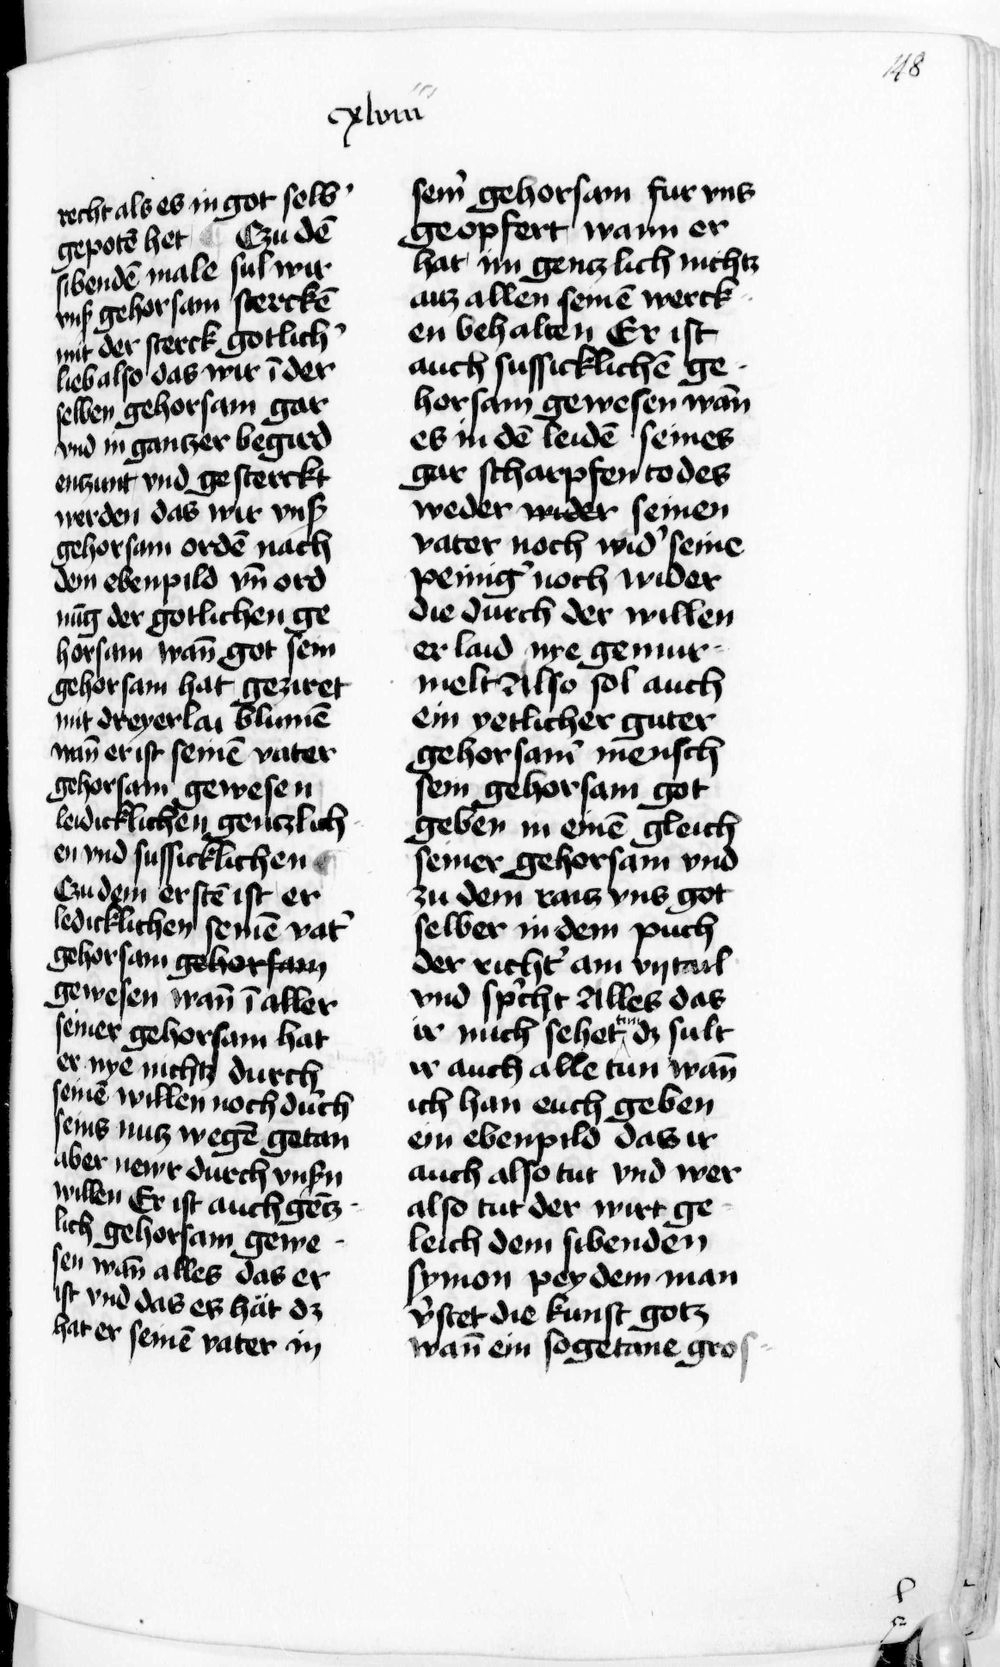 148
cxlviii
recht als es in got selb'
gepotē het Czu dē
sibendē male sul wir
vnß gehorsam sterckē
mit der sterck gotlich'
lieb also das wir ī der
selben gehorsam gar
vnd in gantzer begird
entzunt vnd gesterckt
werden das wir vnß
gehorsam ordē nach
dem ebenpild vn̄ ord
nūg der gotlichen ge
horsam wan̄ got sein
gehorsam hat geziret
mit dreyerlai blumē
wan̄ er ist seinē vater
gehorsam gewesen
leidicklichen gentzlich-
en vnd sussicklichen
Czu dem erstē ist er
ledicklichen seinē vat'
gehorsam gehorsam
gewesen wan̄ ī aller
seiner gehorsam hat
er nye nichtz durch
seinē willen noch durch
seins nutz wegē getan
aber newr durch vnßn
willen Er ist auch gētz-
lich gehorsam gewe-
sen wan̄ alles das er
ist vnd das er hāt dz
hat er seinē vater in
sein' gehorsam fur vns
geopfert wann er
hat im gentzlich nichtz
auz allen seinē werck-
en behalten Er ist
auch sussicklichē ge-
horsam gewesen wan̄
es in dē leidē seines
gar scharpfen todes
weder wider seinen
vater noch wid' seine
peinig' noch wider
die durch der willen
er laid nye gemur-
melt Also sol auch
ein yetlicher guter
gehorsam' mensch
sein gehorsam got
geben in einē gleich
seiner gehorsam vnd
zu dem raitz vns got
selber in dem puch
der richt' am vij tail
vnd sp'cht Alles das
ir mich sehet tun dz sult
ir auch alle tun wan̄
ich han euch geben
ein ebenpild das ir
auch also tut vnd wer
also tut der wirt ge-
leich dem sibenden
symon pey dem man
v'stet die kunst gotz
wan̄ ein sogetane gros-